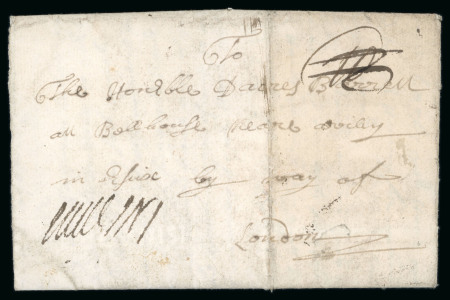 To
The Honƈble Dacres Barrett
att Bellhouse neare
in by way of
London